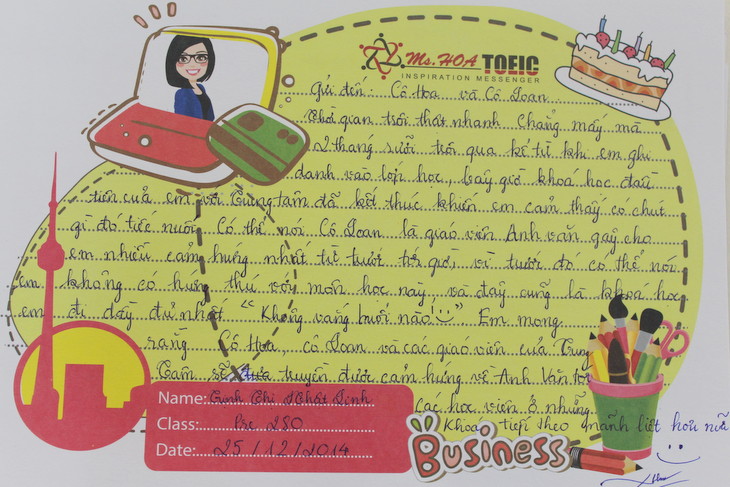 Ms. HOA TOEIC
INSPIRATION MESSENGER
Gửi đến: Cô Hoa và Cô Loan
Thời gian trôi thật nhanh chẳng mấy mà
2 tháng rưỡi trôi qua kể từ khi em ghi
danh vào lớp học, bây giờ khoá học đầu
tiên của em với Trung tâm đã kết thúc khiến em cảm thấy có chút
gì đó tiếc nuối. Có thể nói Cô Loan là giáo viên Anh văn gây cho
em nhiều cảm hứng nhất từ trước tới giờ, vì trước đó có thể nói
em không có hứng thú với môn học này, và đây cũng là khoá học
em đi đầy đủ nhất "Không vắng buổi nào!" Em mong
rằng Cô Hoa, cô Loan và các giáo viên của Trung
Tâm sẽ truyền được cảm hứng về Anh Văn tới
các học viên ở những
khoá tiếp theo mãnh liệt hơn nữa
Name: Trịnh Thị Nhật Linh
Class: Pre 280
Date: 25/12/2014
Business